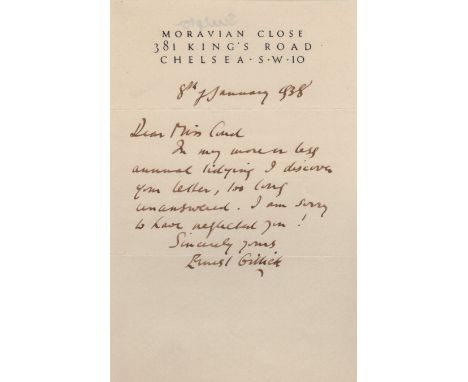 Sculptor
MORAVIAN CLOSE
381 KING'S ROAD
CHELSEA·S·W·10
8th January 1938
Dear Miss
In my more or less
annual tidying I discover
your letter, too long
unanswered. I am sorry
to have neglected you!
Sincerely yours
Ernest Gillick